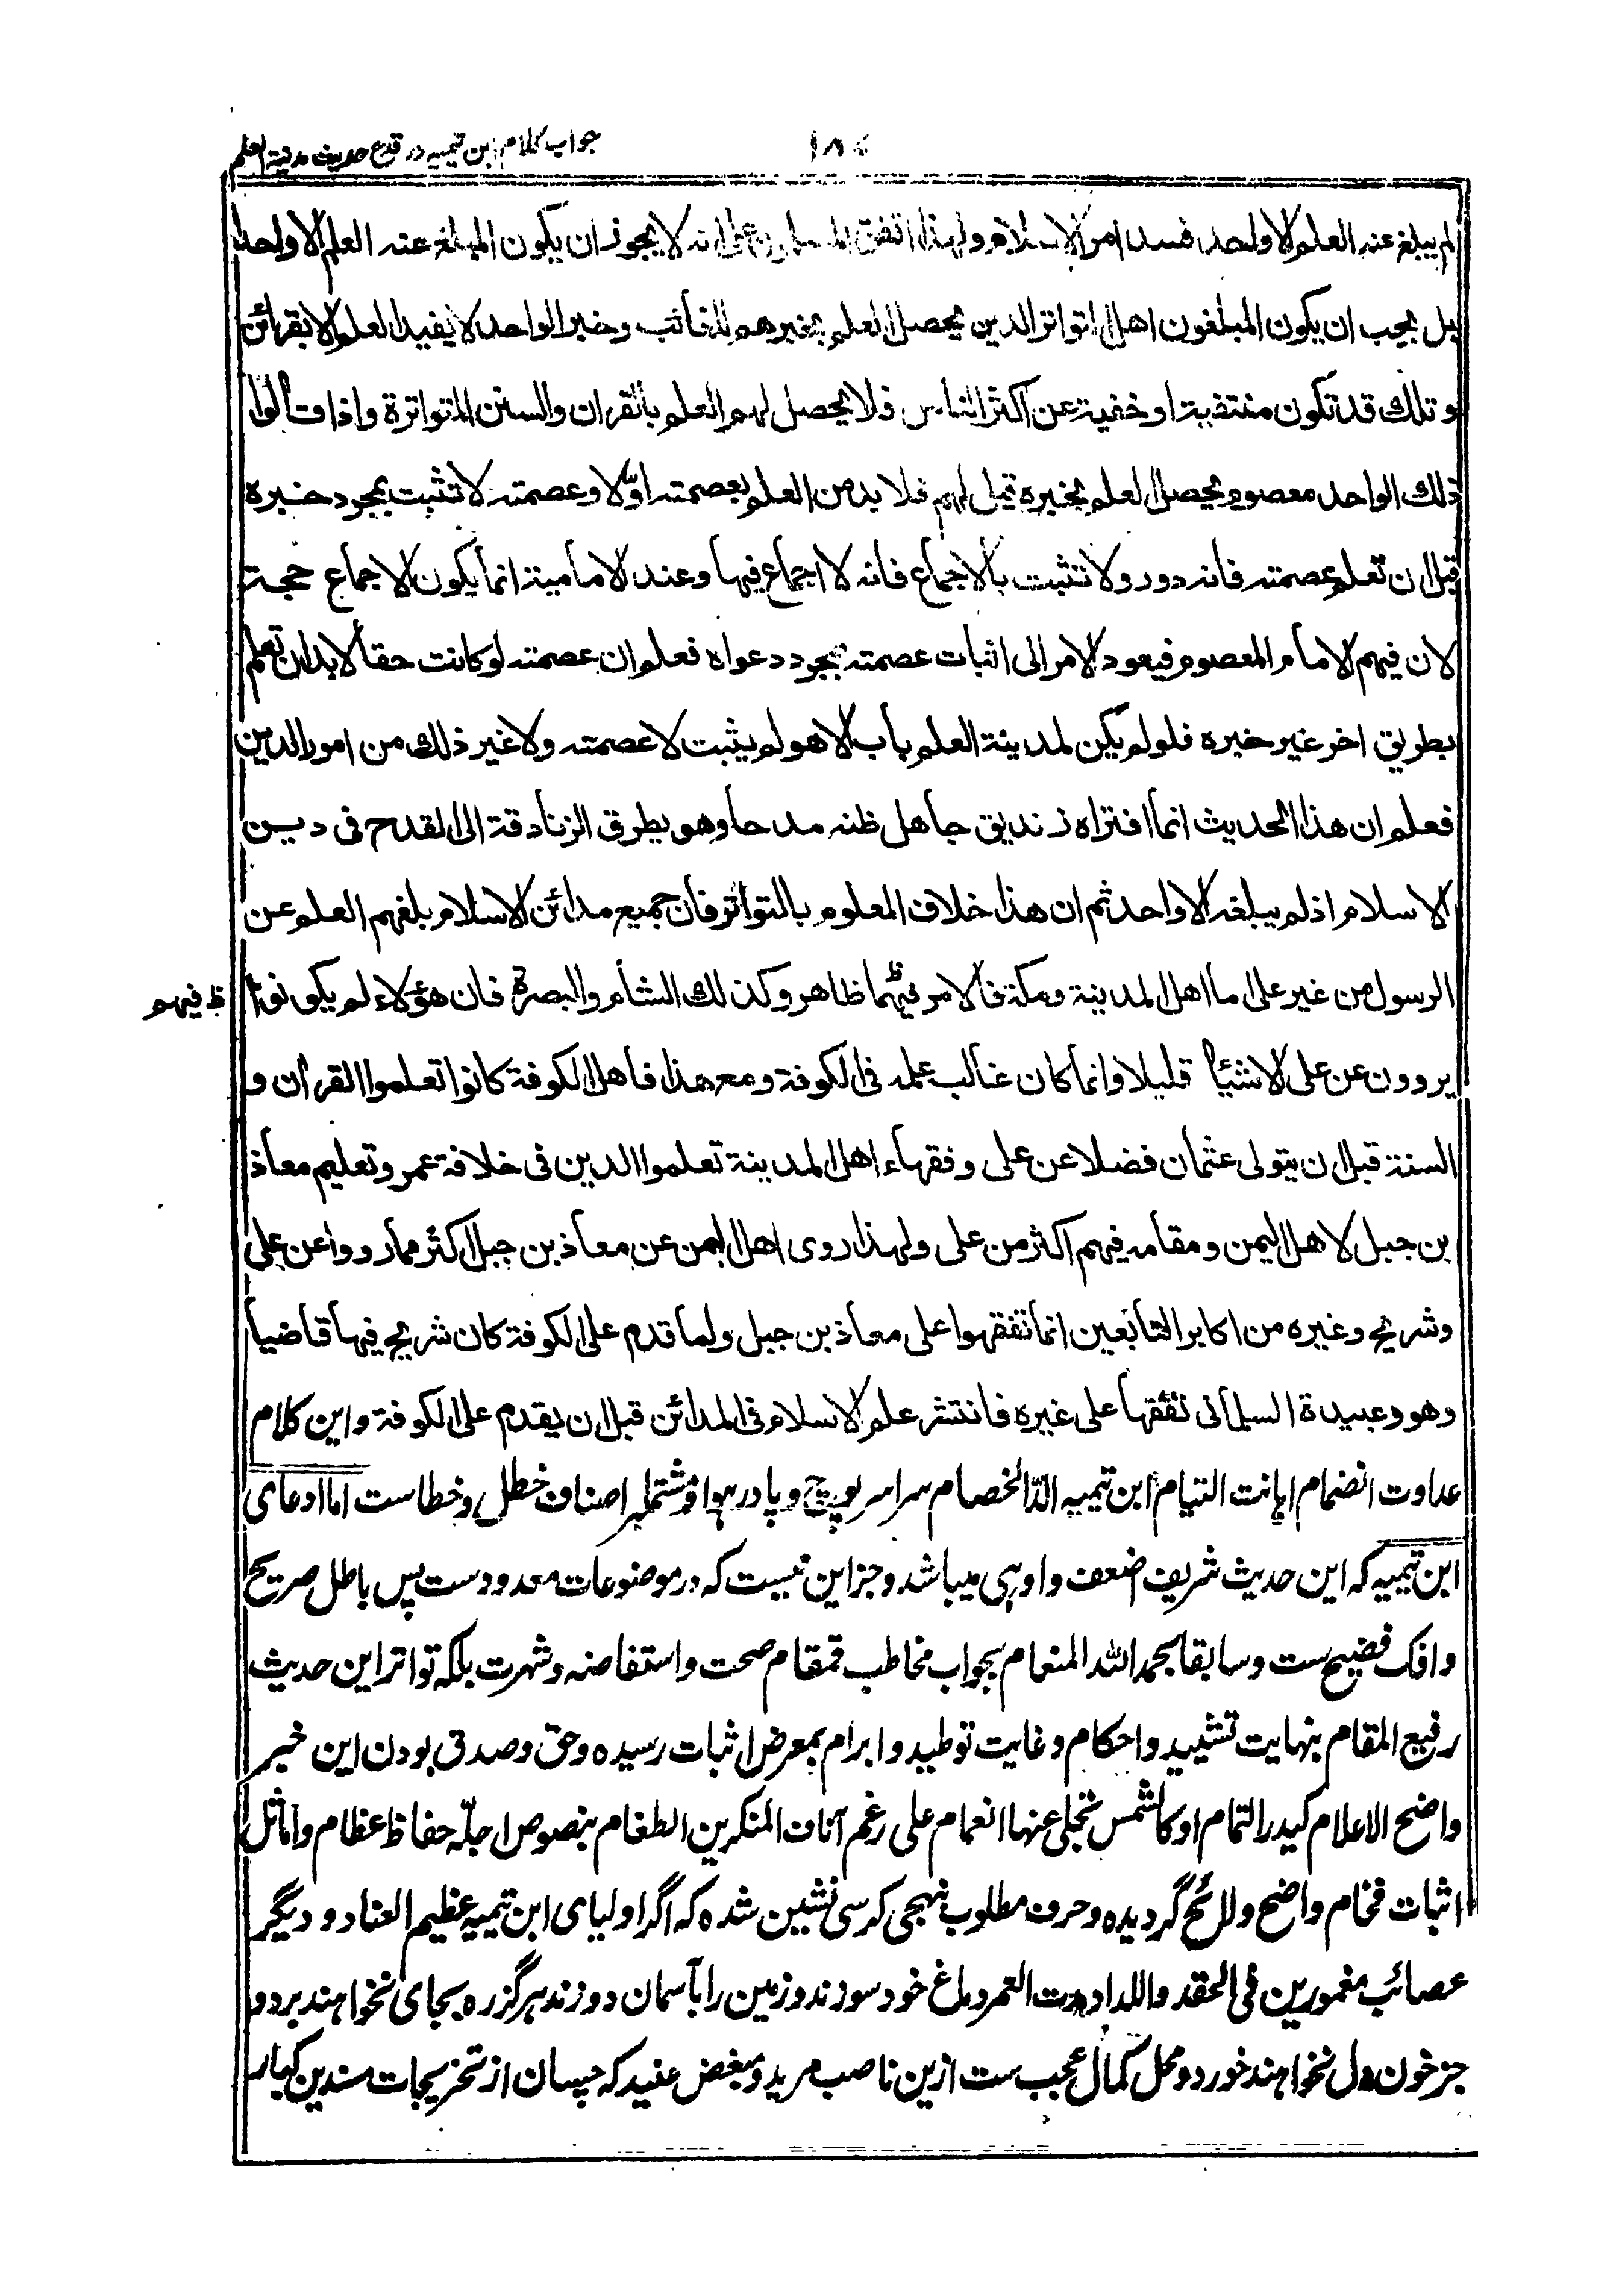 جواب كلام ابن تيميه در قدح حديث مدينة العلم
لم يبلغ عنه العلم الا واحد فسد امر الاسلام ولهذا اتفق المسلمون على انه لا يجوز ان يكون المبلغ عنه العلم الا واحد
بل يجب ان يكون المبلغون اهل التواتر الذين يحصل العلم بخبرهم للغائب وخبر الواحد لا يفيد العلم الا بقرائن
وتلك قد تكون منتفية او خفية عن اكثر الناس فلا يحصل لهم العلم بالقران والسنن المتواترة واذا قالوا
ذلك الواحد معصوم يحصل العلم بخبره قيل لهم فلا بد من العلم بعصمته اوّلا وعصمته لا تثبت بمجرد خبره
قبل ان تعلم عصمته فانه دور ولا تثبت بالاجماع فانه لا اجماع فيها وعند الامامية انما يكون الاجماع حجة
لان فيهم الامام المعصوم فيعود الامر الى اثبات عصمته بمجرد دعواه فعلم ان عصمته لو كانت حقا لا بد ان تعلم
بطريق اخر غير خبره فلو لم يكن لمدينة العلم باب الا هو لم يثبت لا عصمته ولا غير ذلك من امور الدين
فعلم ان هذا الحديث انما افتراه زنديق جاهل ظنه مدحا وهو يطرق الزنادقة الى القدح فى دين
الاسلام اذ لم يبلغه الا واحد ثم ان هذا خلاف المعلوم بالتواتر فان جميع مدائن الاسلام بلغهم العلم عن
الرسول من غير على اما اهل المدينة ومكة فالامر فيهما ظاهر وكذلك الشام والبصرة فان هؤلاء لم يكونوا
ظ فيهم
يروون عن على الا شيئا قليلا وانما كان غالب علمه فى الكوفة ومع هذا فاهل الكوفة كانوا تعلموا القرآن و
السنة قبل ان يتولى عثمان فضلا عن على وفقهاء اهل المدينة تعلموا الدين فى خلافة عمر وتعليم معاذ
بن جبل لاهل اليمن ومقامه فيهم اكثر من على ولهذا روى اهل اليمن عن معاذ بن جبل اكثر مما رووا عن على
وشريح وغيره من اكابر التابعين انما تفقهوا على معاذ بن جبل ولما قدم على الكوفة كان شريح فيها قاضيا
وهو وعبيدة السلمانى تفقها على غيره فانتشر علم الاسلام فى المدائن قبل ان يقدم على الكوفة واين كلام
عداوت انضمام اهانت التيام ابن تيميه الدّ الخصام سراسر پوچ و پا در هوا و مشتمل بر اصناف خطل و خطاست اما ادعاى
ابن تيميه كه اين حديث شريف اضعف و اوهى ميباشد و جز اين نيست كه در موضوعات معدودست پس باطل صريح
وافك فضيح ست و سابقا بحمد الله المنعام بجواب مخاطب قمقام صحت و استفاضه و شهرت بلكه تواتر اين حديث
رفيع المقام بنهايت تشييد و احكام و غايت توطيد و ابرام بمعرض اثبات رسيده و حق و صدق بودن اين خبر
واضح الاعلام كبدر التمام او كالشمس تجلى عنها الغمام على رغم آناف المنكرين الطغام بنصوص اجلّه حفاظ عظام و اماثل
اثبات فخام واضح و لائح گرديده و حرف مطلوب بنهجى كرسى نشين شده كه اگر اولياى ابن تيميه عظيم العناد و ديگر
عصائب مغمورين فى الحقد واللداد مدت العمر دماغ خود سوزند و زمين را بآسمان دوزند هرگز ره بجاى نخواهند برد و
جز خون دل نخواهند خورد و محل كمال عجب ست ازين ناصب مريد و مبغض عنيد كه چسان از تخريجات مسندين كبار